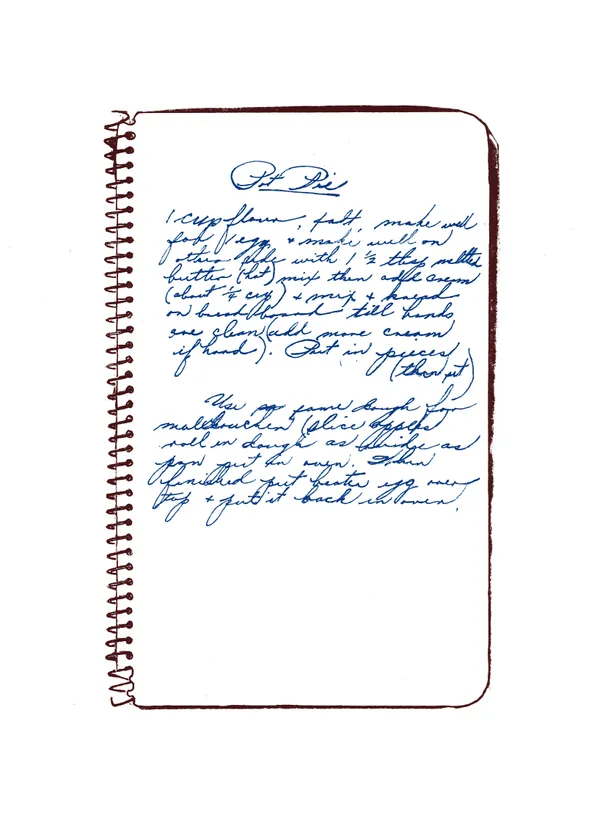 Pot Pie
1 cup flour, salt, make well
for 1 egg, & make well on
other side with 1 ½ tbsp melted
butter (hot) mix then add cream
(about ¼ cup) & mix & knead
on bread board till hands
are clean (add more cream
if hard). Put in pieces
(then pot)
Use same dough for
(slice apples
roll in dough as as
pan put in oven. When
finished put beaten egg over
top & put it back in oven.